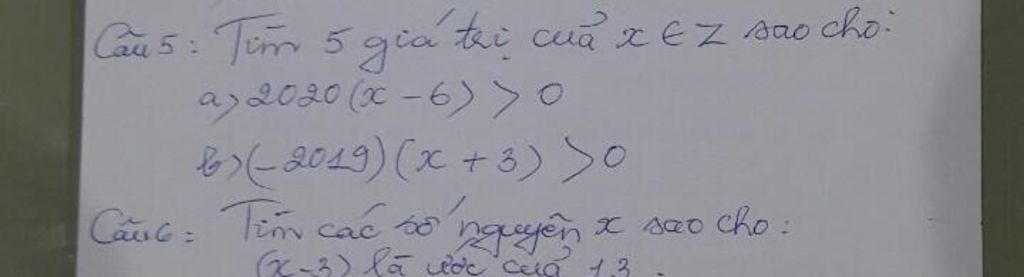 Câu 5: Tìm 5 giá trị của x ∈ Z sao cho:
a) 2020(x - 6) > 0
b) (-2019)(x + 3) > 0
Câu 6: Tìm các số nguyên x sao cho:
(x-3) là ước của 13.